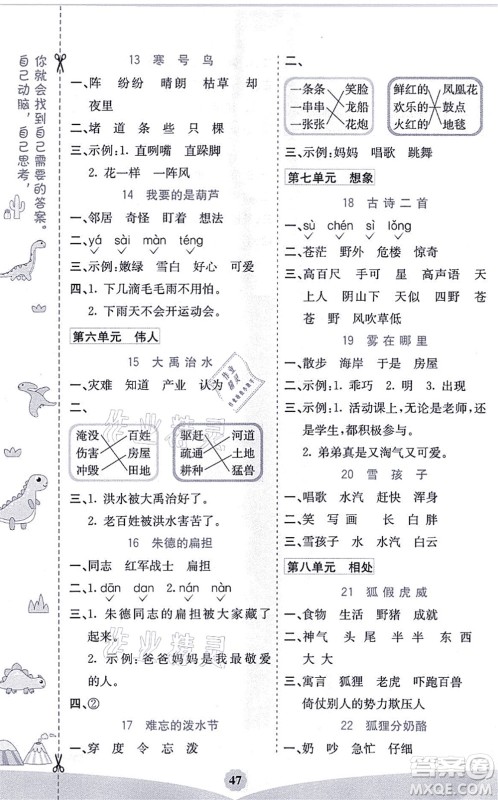 你就会找到自己需要的答案。
自己动脑，自己思考，
13 寒号鸟
一、阵 纷纷 晴朗 枯草 却
夜里
二、堵 道 条 些 只 棵
三、示例：1. 直咧嘴 直跺脚
2. 花一样 一阵风
14 我要的是葫芦
一、邻居 奇怪 盯着 想法
二、yá sài màn téng
三、示例：嫩绿 雪白 好心 可爱
四、1. 下几滴毛毛雨不用怕！
2. 下雨天不会开运动会。
第六单元 伟人
15 大禹治水
一、灾难 知道 产业 认为
二、
淹没 百姓
伤害 房屋
冲毁 田地
驱赶 河道
疏通 土地
耕种 猛兽
三、1. 洪水被大禹治好了。
2. 老百姓被大禹救了。
16 朱德的扁担
一、同志 红军战士 扁担
二、1. dān dan 2. cáng
三、1. 朱德同志的扁担被大家藏了
起来。
2. 示例：爸爸妈妈是我最敬爱
的人。
四、②
17 难忘的泼水节
一、穿 度 令 忘 泼
二、
一条条 笑脸
一串串 龙船
一张张 花炮
鲜红的 凤凰花
欢乐的 鼓点
火红的 地毯
三、示例：妈妈 唱歌 跳舞
第七单元 想象
18 古诗二首
一、sù chén sì lǒng
二、苍茫 野外 危楼 惊奇
三、高百尺 手 星 高声语 天
上人 阴山下 天 四野 苍
苍 茫茫 风吹草低
19 雾在哪里
一、散步 海岸 于是 房屋
二、示例：1. 乖巧 2. 明 3. 出现
三、示例：1. 活动课上，无论是老师，还
是同学，都玩得很开心。
2. 弟弟真是又淘气又可爱。
20 雪孩子
一、唱歌 水汽 赶快 浑身
二、添 星 奔 长 白 胖
三、雪孩子 水 水汽 白云
第八单元 相处
21 狐假虎威
一、食物 生活 野猪 或者
二、神气 头 尾 半 半 东 西
大 大
三、寓言 狐狸 老虎 吓跑百兽
倚仗别人的势力欺压人
22 狐狸分奶酪
一、奶 吵 急忙 仔细
47
作业精灵
答案圈
MXQE.COM